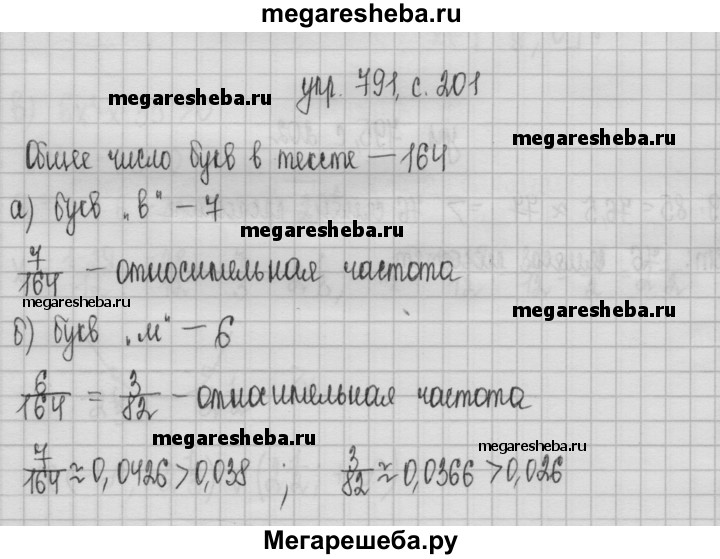 megaresheba.ru
упр. 791, с. 201
megaresheba.ru
megaresheba.ru
Общее число букв в тексте – 164
а) букв „в" – 7
megaresheba.ru
7/164 – относительная частота
megaresheba.ru
megaresheba.ru
б) букв „м" – 6
6/164 = 3/82 – относительная частота
megaresheba.ru
megaresheba.ru
7/164 ≈ 0,0426 > 0,038 ; 3/82 ≈ 0,0366 > 0,026
Мегарешеба.ру